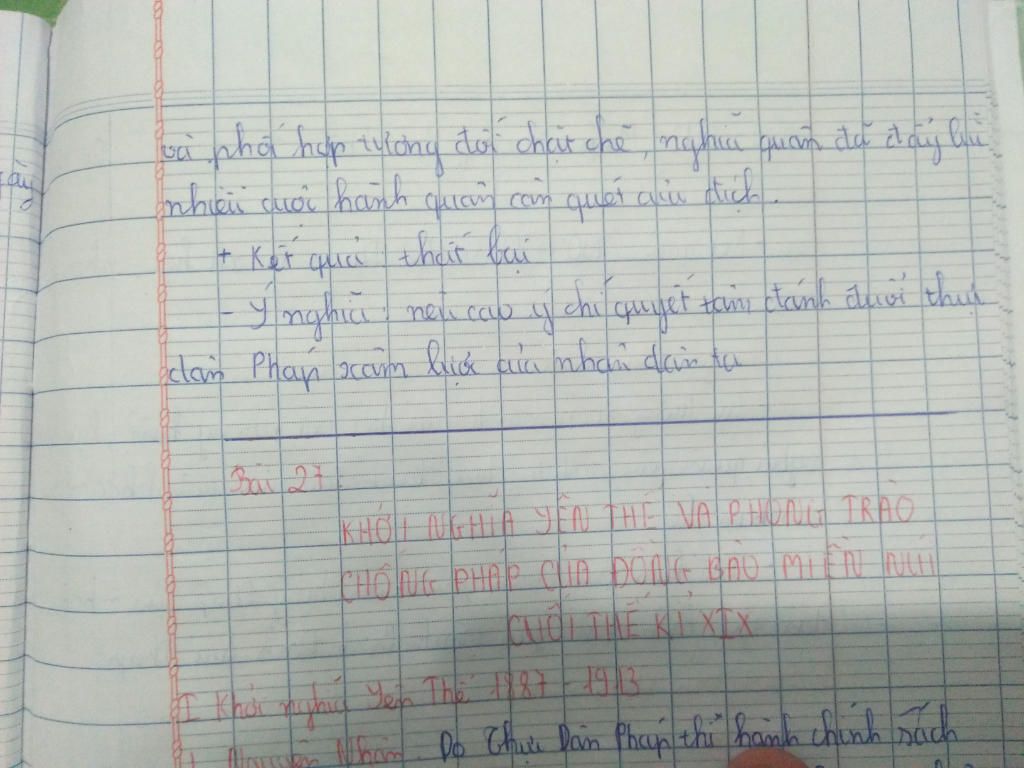 và phối hợp tương đối chặt chẽ, nghĩa quân đã đẩy lùi
nhiều cuộc hành quân càn quét của địch.
+ Kết quả: thất bại
- Ý nghĩa: nêu cao ý chí quyết tâm đánh đuổi thực
dân Pháp xâm lược của nhân dân ta
Bài 27
KHỞI NGHĨA YÊN THẾ VÀ PHONG TRÀO
CHỐNG PHÁP CỦA ĐỒNG BÀO MIỀN NÚI
CUỐI THẾ KỈ XIX
I Khởi nghĩa Yên Thế 1887 - 1913
1, Nguyên Nhân. Do Thực Dân Pháp thi hành chính sách